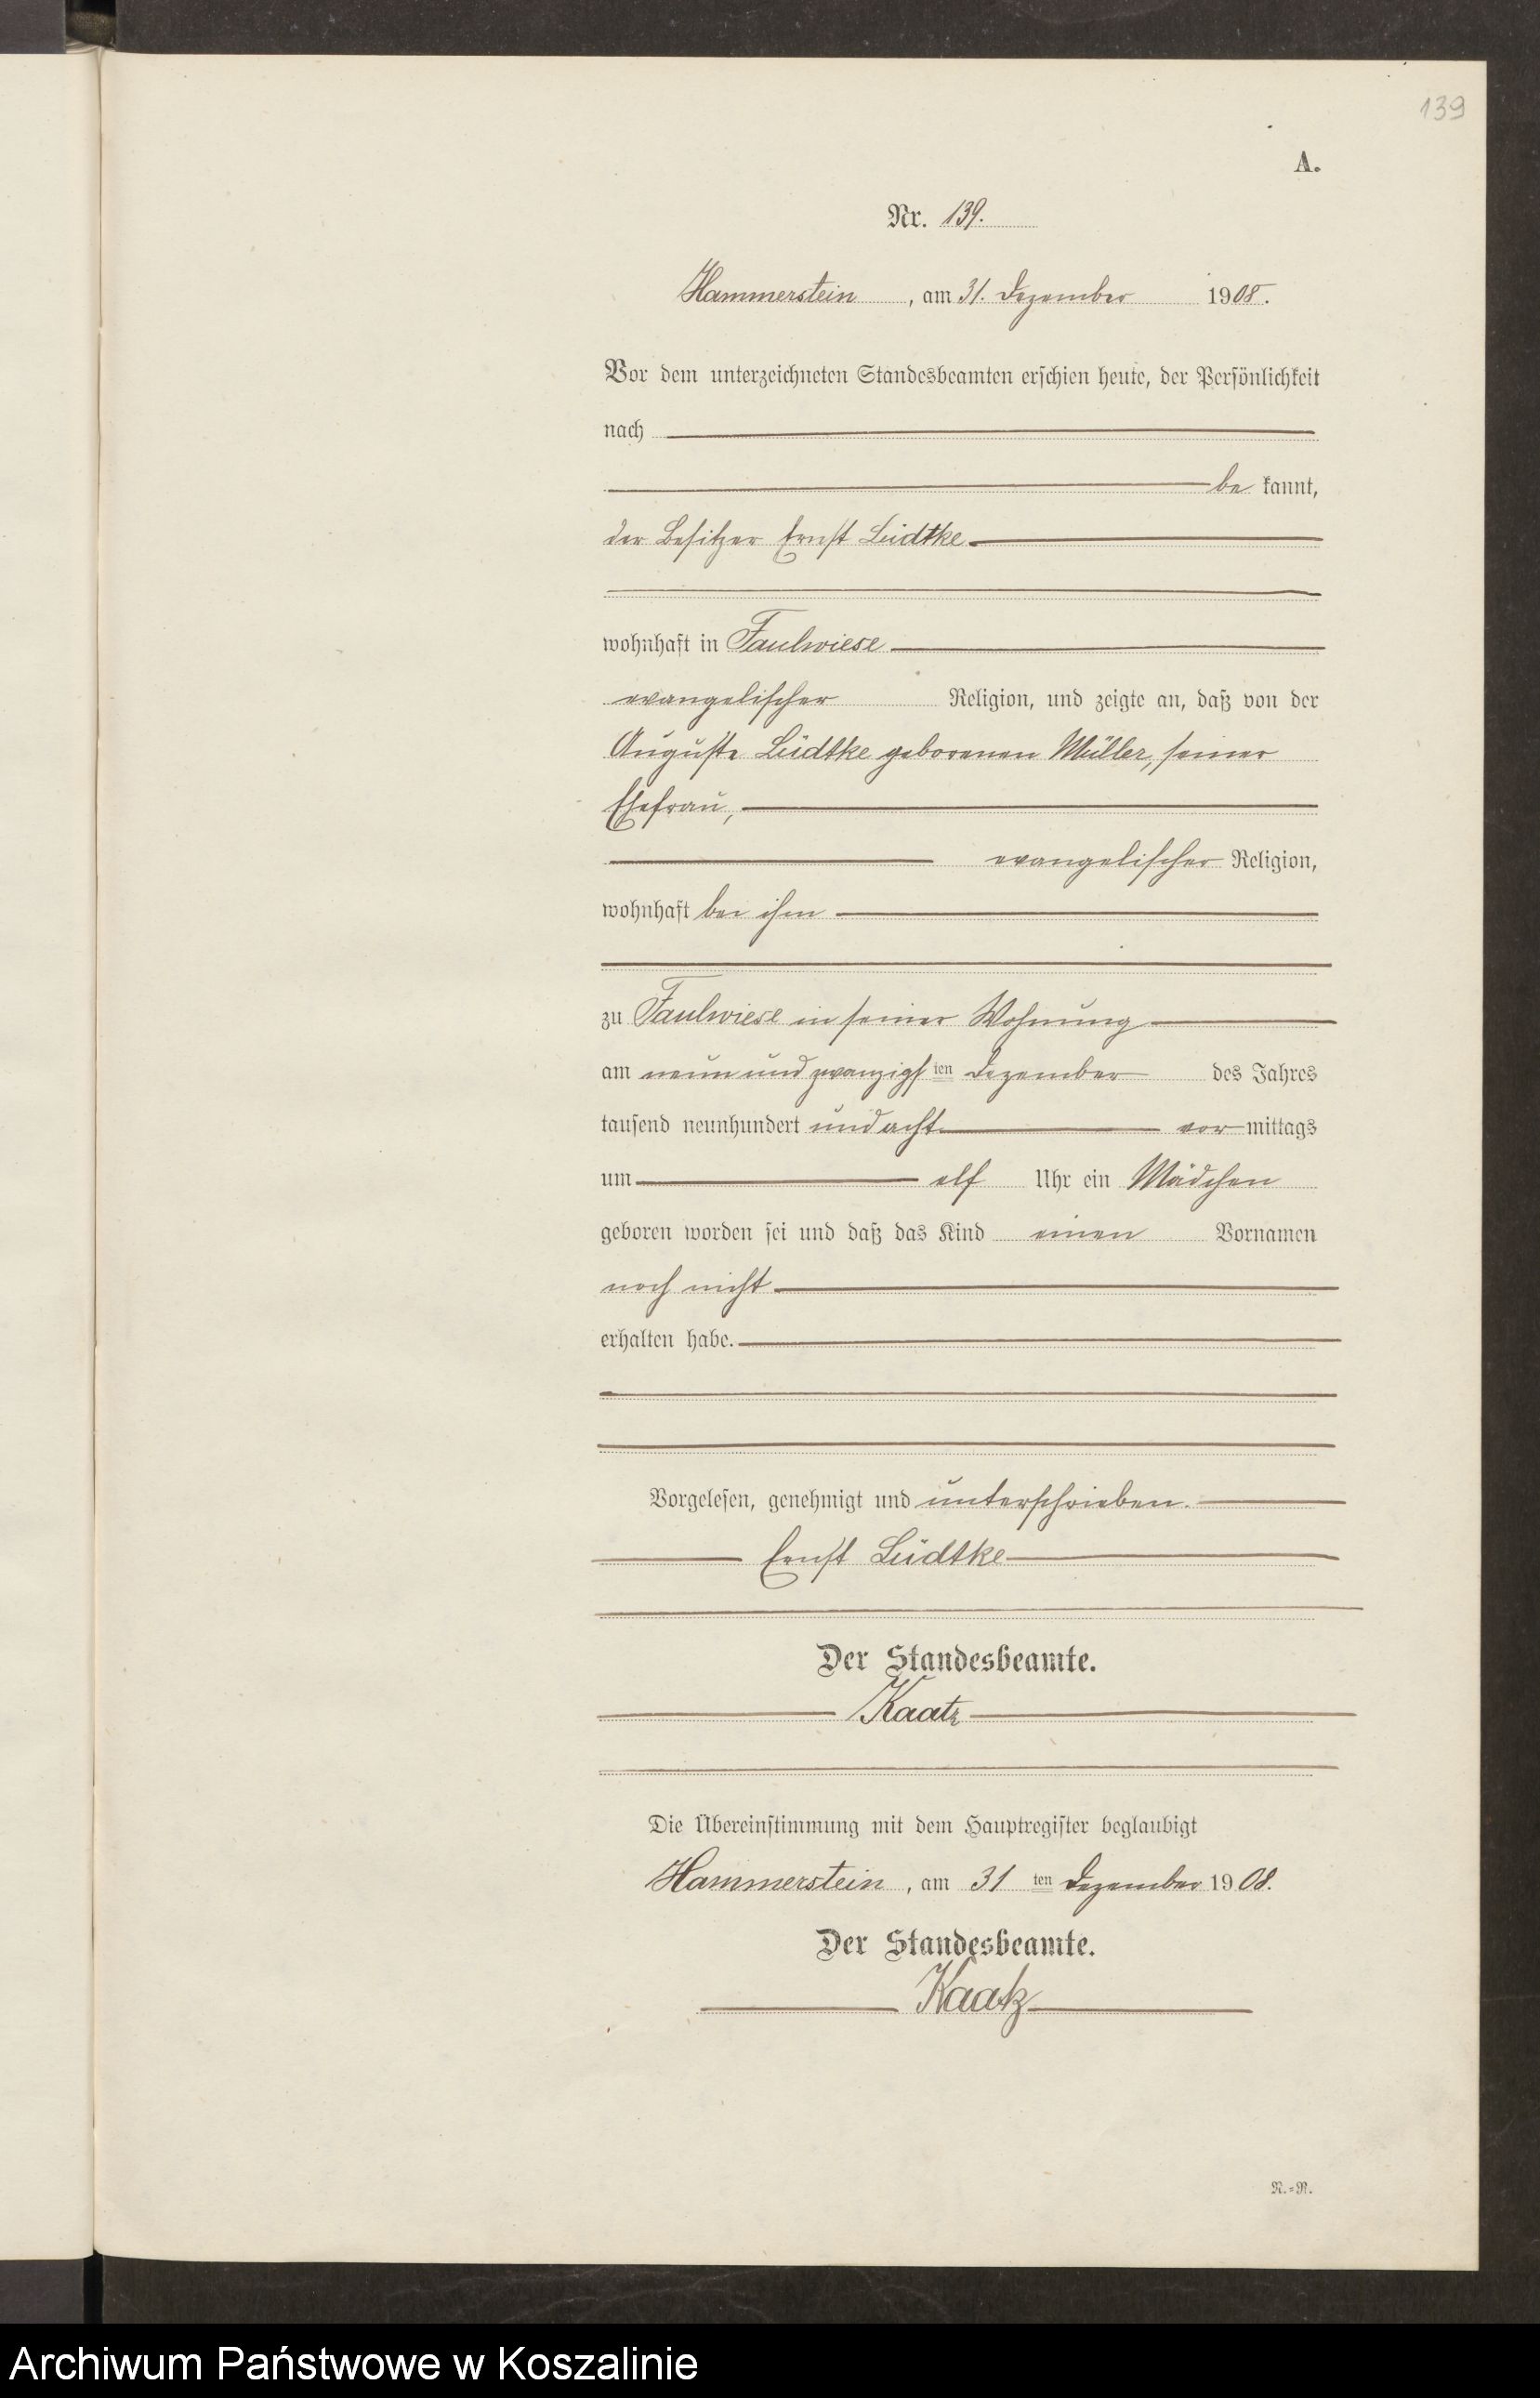 139
A.
Nr. 139.
Hammerstein, am 31. Dezember 1908.
Vor dem unterzeichneten Standesbeamten erschien heute, der Persönlichkeit
nach
be kannt,
der Besitzer Ernst Lüdtke
wohnhaft in Faulwiese
evangelischer Religion, und zeigte an, daß von der
Auguste Lüdtke geborenen Müller, seiner
Ehefrau,
evangelischer Religion,
wohnhaft bei ihm
zu Faulwiese in seiner Wohnung
am neun und zwanzigsten Dezember des Jahres
tausend neunhundert und acht vor mittags
um elf Uhr ein Mädchen
geboren worden sei und daß das Kind einen Vornamen
noch nicht
erhalten habe.
Vorgelesen, genehmigt und unterschrieben.
Ernst Lüdtke
Der Standesbeamte.
Kaatz
Die Übereinstimmung mit dem Hauptregister beglaubigt
Hammerstein, am 31 ten Dezember 1908.
Der Standesbeamte.
Kaatz
N.=R.
Archiwum Państwowe w Koszalinie